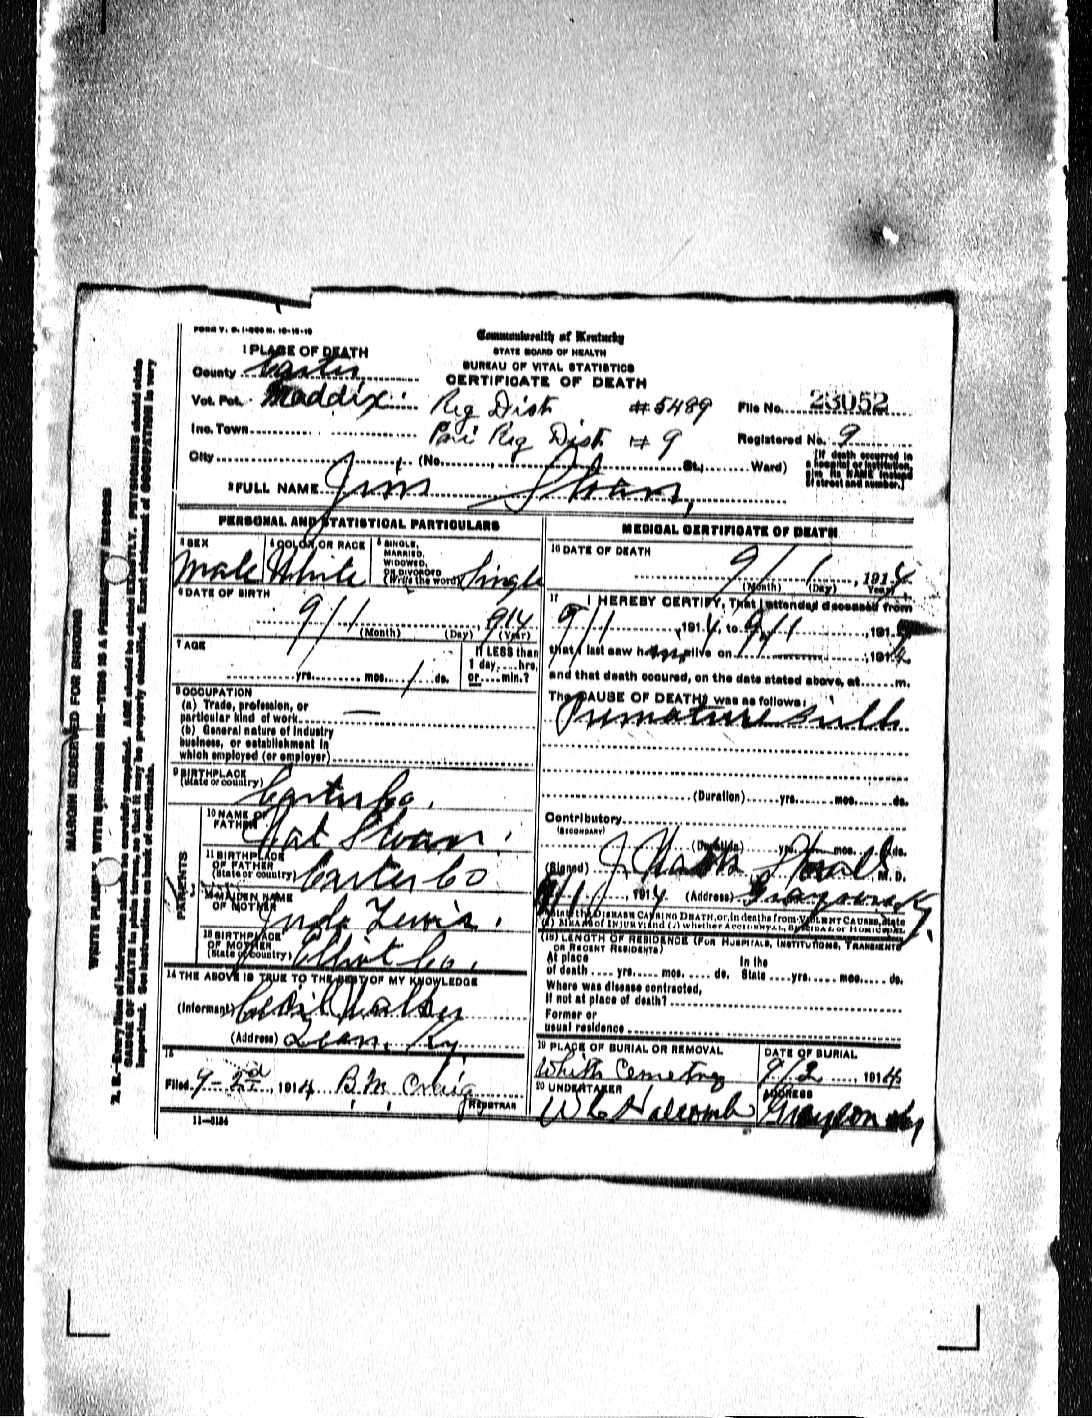 FORM V. S. 1-
Commonwealth of Kentucky
STATE BOARD OF HEALTH
BUREAU OF VITAL STATISTICS
CERTIFICATE OF DEATH
1 PLACE OF DEATH
County Carter
Vot. Pct. Maddix Reg Dist #5489 File No. 23052
Inc. Town Pri Reg Dist # 9 Registered No. 9
City (No. St.; Ward) [If death occurred in a hospital or institution, give its NAME instead of street and number.]
2 FULL NAME Jim Sloan,
PERSONAL AND STATISTICAL PARTICULARS
3 SEX Male
4 COLOR OR RACE White
5 SINGLE, MARRIED, WIDOWED, OR DIVORCED (Write the word) Single
6 DATE OF BIRTH
9/1 914
(Month) (Day) (Year)
7 AGE
yrs. mos. 1 ds.
If LESS than 1 day hrs. or min.?
8 OCCUPATION
(a) Trade, profession, or
particular kind of work —
(b) General nature of industry
business, or establishment in
which employed (or employer)
9 BIRTHPLACE
(State or country) Carter Co.
PARENTS
10 NAME OF
FATHER Nat Sloan.
11 BIRTHPLACE
OF FATHER
(State or country) Carter Co
12 MAIDEN NAME
OF MOTHER Lewis.
13 BIRTHPLACE
OF MOTHER
(State or country) Elliot Co.
14 THE ABOVE IS TRUE TO THE BEST OF MY KNOWLEDGE
(Informant) Cecil
(Address) Ky
15
Filed 9-2nd, 1914 B.M. Craig
REGISTRAR
11-3184
MEDICAL CERTIFICATE OF DEATH
16 DATE OF DEATH
9/1, 1914
(Month) (Day) Year)
17 I HEREBY CERTIFY, That I attended deceased from
9/1, 1914, to 9/1, 191
that I last saw him alive on —, 191
and that death occured, on the date stated above, at m.
The CAUSE OF DEATH was as follows:
Premature Birth
(Duration) yrs. mos. ds.
Contributory
(SECONDARY)
(Duration) yrs. mos. ds.
(Signed) J. M. D.
9/1, 1914 (Address) Grayson Ky.
State the DISEASE CAUSING DEATH, or, in deaths from VIOLENT CAUSES, state
(1) MEANS OF INJURY; and (2) whether ACCIDENTAL, SUICIDAL or HOMICIDAL
(18) LENGTH OF RESIDENCE (FOR HOSPITALS, INSTITUTIONS, TRANSIENTS
OR RECENT RESIDENTS)
At place In the
of death yrs. mos. ds. State yrs. mos. ds.
Where was disease contracted,
If not at place of death?
Former or
usual residence
19 PLACE OF BURIAL OR REMOVAL DATE OF BURIAL
Cemetry 9/2, 1914
20 UNDERTAKER ADDRESS
W C Halcomb Grayson Ky
MARGIN RESERVED FOR BINDING
WRITE PLAINLY WITH UNFADING INK—THIS IS A PERMANENT RECORD
N. B.—Every item of information should be carefully supplied. AGE should be stated EXACTLY. PHYSICIANS should state
CAUSE OF DEATH in plain terms, so that it may be properly classified. Exact statement of OCCUPATION is very
important. See instructions on back of certificate.